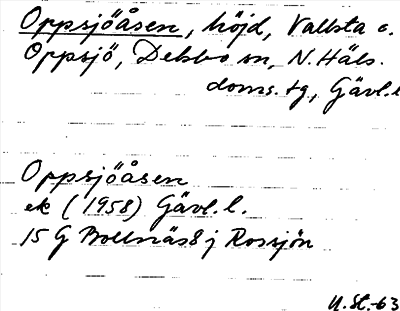 Oppsjöåsen, höjd, Vallsta o.
Oppsjö, Delsbo sn, N. Häls.
doms. tg, Gävl. l
Oppsjöåsen
ek (1958) Gävl. l.
15 G Bollnäs 8 j Rossjön
U.St.-63